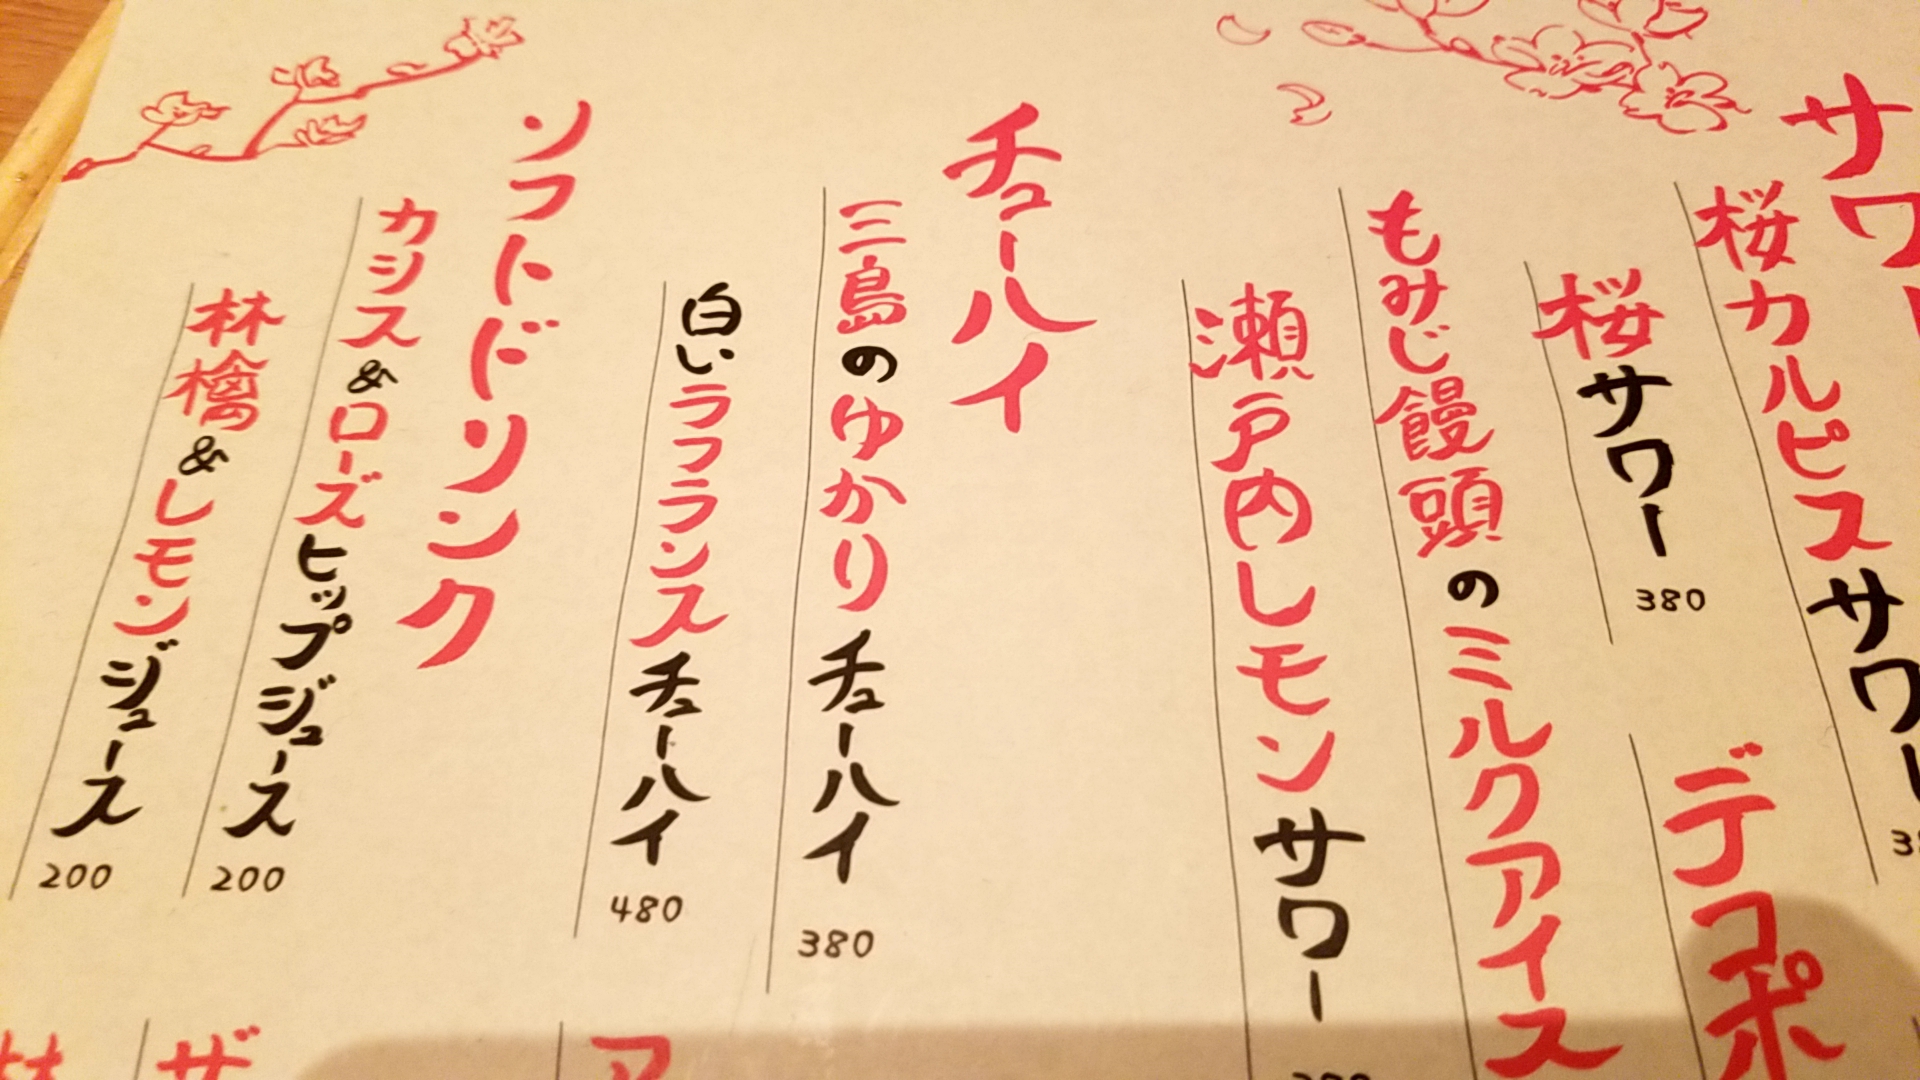 サワー
桜カルピスサワー
桜サワー
380
デコポ
もみじ饅頭のミルクアイス
瀬戸内レモンサワー
チューハイ
三島のゆかりチューハイ
380
白いラフランスチューハイ
480
ソフトドリンク
カシス&ローズヒップジュース
200
林檎&レモンジュース
200
ア
ザ